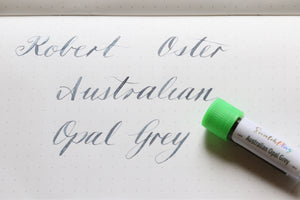 Robert Oster
Australian
Opal Grey
Australian Opal Grey